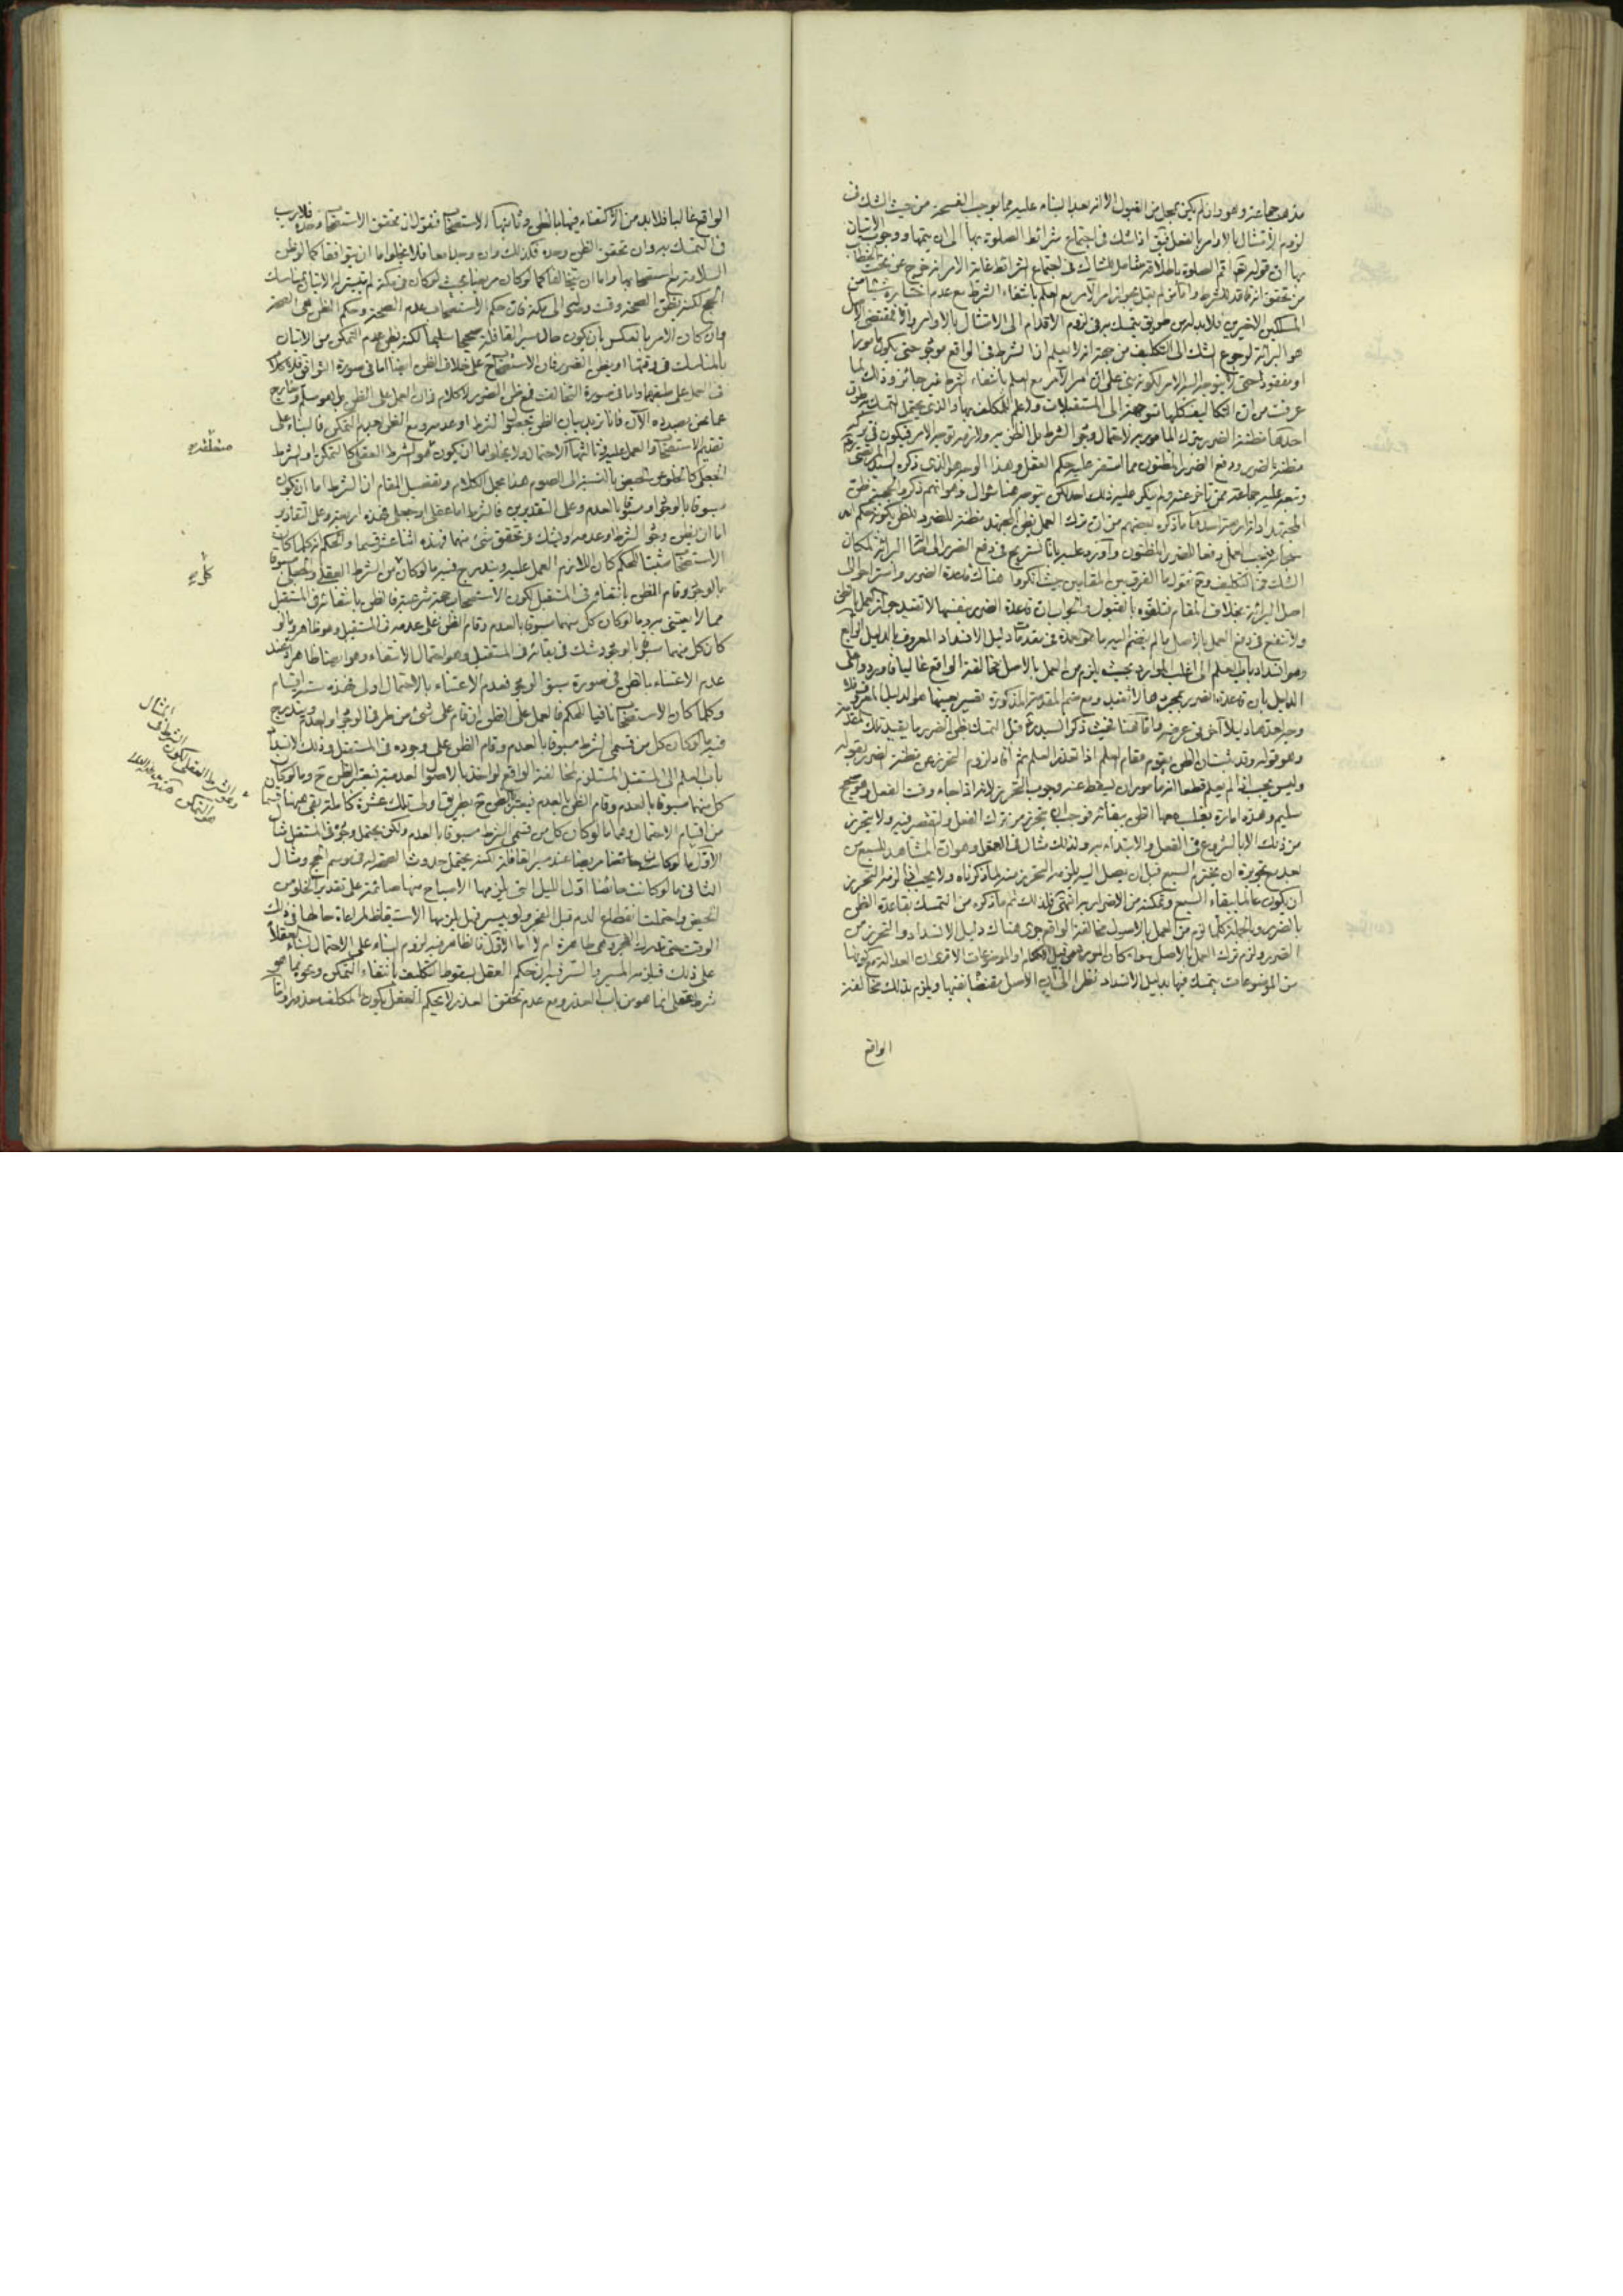 مذهب جماعة وهو وان لم يكن بمحل من القبول الا انه بعد البناء عليه مما يوجب الفسحة من حيث الشك في
لزوم الامتثال بالاوامر بالفعل فيق اذا شك في اجتماع شرائط الصلوة بها الى ان يتمها ووجوب الاتيان
بها ان قوله تعا اقم الصلوة باطلاقه شامل للشاك في اجتماع الشرائط غاية الامر انه خرج عن تحت الخطاب
من تحقق انه فاقد للشرط واما من لم يقل بجواز امر الآمر مع العلم بانتفاء الشرط مع عدم
المسلكين الاخيرين فلا بد له من طريق يتمسك به في لزوم الاقدام الى الامتثال بالاوامر والا فمقتضى الاصل
هو البرائة لرجوع الشك الى التكليف من جهة انه لا يعلم ان الشرط في الواقع موجود حتى يكون مأمورا
او مفقود حتى لا يتوجه اليه الامر لكونه بنى على ان امر الآمر مع العلم بانتفاء الشرط غير جائز وذلك لما
عرفت من ان التكاليف كلها متوجهة الى المستقبلات ولا علم للمكلف بها والذي يحتمل التمسك به طرق
احدها مظنة الضرر بترك المأمور به لاحتمال وجود الشرط بل الظن به ولازمه توجه الامر فيكون في تركه
مظنة الضرر ودفع الضرر المظنون مما استقر عليه حكم العقل وهذا الوجه هو الذي ذكره السيد المرتضى
وتبعه عليه جماعة ممن تأخر عنه ولم ينكر عليه ذلك احد لكن يتوجه هنا سؤال وهو انهم ذكروا لحجية ظن
المجتهد ادلة رابعة اسدها ما ذكره بعضهم من ان ترك العمل بظن المجتهد مظنة للضرر
فيجب العمل دفعا للضرر المظنون واورد عليه
الشك في التكليف وح نقول ما الفرق بين المقامين حيث انكروا هناك قاعدة الضرر واستراحوا الى
اصل البرائة بخلاف المقام فتلقوه بالقبول والجواب ان قاعدة الضرر بنفسها لا تفيد جواز العمل بالظن
ولا تنفع في دفع العمل بالاصل ما لم ينضم اليه ما هو احدى مقدمات دليل الانسداد المعروف بالدليل الرابع
وهو انسداد باب العلم الى اغلب الموارد بحيث يلزم من العمل بالاصل مخالفة الواقع غالبا فاوردوا على
الدليل بان قاعدة الضرر بمجردها لا تفيد ومع ضم المقدمة المذكورة تصير بعينها هو الدليل المعروف فلا
وجه لعدها دليلا آخر في عرضه واما هنا فحيث ذكر السيد ره قبل التمسك بظن الضرر ما يفيد تلك المقدمة
وهو قوله وقد ثبت ان الظن يقوم مقام العلم اذا تعذر العلم ثم افاد لزوم التحرز عن مظنة الضرر بقوله
وليس يجب اذا لم يعلم قطعا انه مأمور ان يسقط عنه وجوب التحرز لانه اذا جاء وقت الفعل وهو صحيح
سليم وهذه امارة يغلب معها الظن ببقائه فوجب ان يتحرز من ترك الفعل والتقصير فيه ولا يتحرز
من ذلك الا بالشروع في الفعل والابتداء به ولذلك مثال في العقل وهو ان المشاهد للسبع من
بعد مع تجويزه ان يخترم السبع قبل ان يصل اليه يلزمه التحرز منه لما ذكرناه ولا يجب اذا لزمه التحرز
ان يكون عالما ببقاء السبع وتمكنه من الاضرار به انتهى فلذلك تم ما ذكره من التمسك بقاعدة الظن
بالضرر وبالجملة كلما لزم من العمل بالاصول مخالفة الواقع جرى هناك دليل الانسداد والتحرز من
الضرر ولزم ترك العمل بالاصل سواء كان المورد من قبيل الاحكام او الموضوعات الا ترى ان العدالة مع كونها
من الموضوعات يتمسك فيها بدليل الانسداد نظرا الى ان الاصل يقتضي نفيها ويلزم بذلك مخالفة
الواقع
الواقع غالبا فلا بد من الاكتفاء فيها بالظن وثانيها الاستصحاب فنقول ان تحقق الاستصحاب وحده فلا ريب
في التمسك به وان تحقق الظن وحده فكذلك وان وجدا معا فلا يخلو اما ان يتوافقا كما لو ظن
السلامة مع استصحابها واما ان يتخالفا كما لو كان مريضا بحيث لو كان في مكة لم يتيسر له الاتيان بمناسك
الحج لكنه يظن الصحة وقت وصوله الى مكة فان حكم الاستصحاب عدم الصحة وحكم الظن هي الصحة
وان كان الامر بالعكس بان يكون حال سير القافلة صحيحا سليما لكنه يظن عدم التمكن من الاتيان
بالمناسك في وقتها او يظن الضرر فان الاستصحاب ح على خلاف الظن ايضا اما في صورة التوافق فلا كلام
في العمل على طبقهما واما في صورة التخالف ففي ظن الضرر لا كلام فان العمل على الظن بل هو مسلم وخارج
عما نحن بصدده الآن
تقديم الاستصحاب والعمل عليه وثالثها الاحتمال ولا يخلو اما ان يكون هو الشرط العقلي كالتمكن او الشرط
الجعلي كالخلو عن الحيض بالنسبة الى الصوم هذا مجمل الكلام وتفصيل المقام ان الشرط اما ان يكون
مسبوقا بالوجود او مسبوقا بالعدم وعلى التقديرين فالشرط اما عقلي او جعلي فهذه اربعة وعلى التقادير
اما ان يظن وجود الشرط او عدمه او يشك في تحقق شئ منهما فهذه اثنا عشر قسما والحكم انه كلما كان
الاستصحاب مثبتا للحكم كان اللازم العمل عليه ويندرج فيه ما لو كان من الشرط العقلي والجعلي مسبوقا
بالوجود وقام الظن بانتفائه في المستقبل لكون الاستصحاب حجة شرعية فالظن بانتفائه في المستقبل
مما لا يعتنى به وما لو كان كل منهما مسبوقا بالعدم وقام الظن على عدمه في المستقبل وهو ظاهر وما لو
كان كل منهما مسبوقا بالوجود شك في بقائه في المستقبل وهو احتمال الانتفاء وهو ايضا ظاهر اذ عند
عدم الاعتناء بالظن في صورة سبق الوجود فعدم الاعتناء بالاحتمال اولى فهذه ستة اقسام
وكلما كان الاستصحاب نافيا للحكم فالعمل على الظن ان قام على شئ من طرفي الوجود او العدم ويندرج
فيه ما لو كان كل من قسمي الشرط مسبوقا بالعدم وقام الظن على وجوده في المستقبل وذلك لانسداد
باب العلم الى المستقبل المستلزم لمخالفة الواقع لو اخذ بالاصول العدمية فيعتبر الظن ح وما لو كان
كل منهما مسبوقا بالعدم وقام الظن بالعدم فيعتبر الظن ح بطريق اولى تلك عشرة كاملة بقى هيهنا قسمان
من اقسام الاحتمال وهما ما لو كان كل من قسمي الشرط مسبوقا بالعدم ولكن يحتمل وجوده في المستقبل مثال
الاول ما لو كان مريضا عند سير القافلة لكنه يحتمل حدوث الصحة له في موسم الحج ومثال
الثاني ما لو كانت حائضا اول الليل التي يلزمها الاصباح منها صائمة على تقدير الخلو من
الحيض واحتملت انقطاع الدم قبل الفجر ولو بيسير فهل يلزمها الاستيقاظ لمراعاة حالها في ذلك
الوقت حتى تدرك الفجر وهي طاهرة ام لا اما الاول فالظاهر فيه لزوم البناء على الاحتمال لبناء العقلاء
على ذلك فيلزمه المسير والسر فيه ان حكم العقل بسقوط التكليف بانتفاء التمكن ونحوه مما هو
شرط عقلي انما هو من باب العذر ومع عدم تحقق العذر لا يحكم العقل بكون المكلف معذورا واما
المثال
وهو الشرط العقلي لكون
التمكن